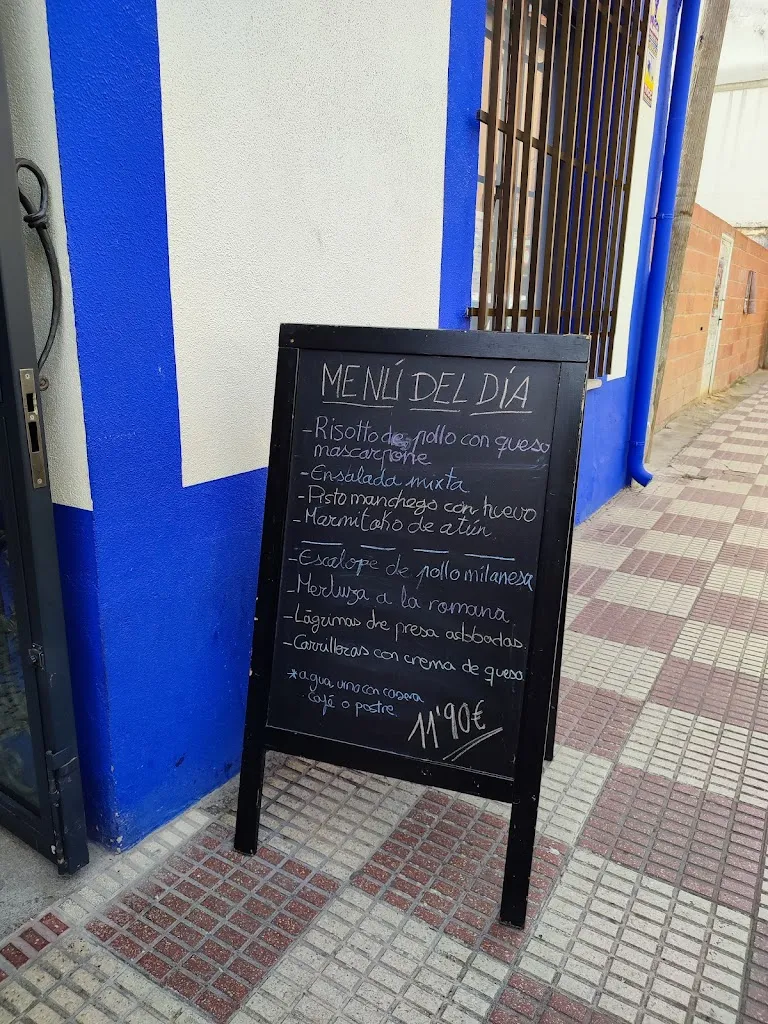 MENÚ DEL DÍA
-Risotto de pollo con queso
mascarpone
-Ensalada mixta
-Pisto manchego con huevo
-Marmitako de atún
-Escalope de pollo milanesa
-Merluza a la romana
-Lágrimas de presa adobadas
-Carrilleras con crema de queso
*agua, vino con casera
café o postre
11'90€